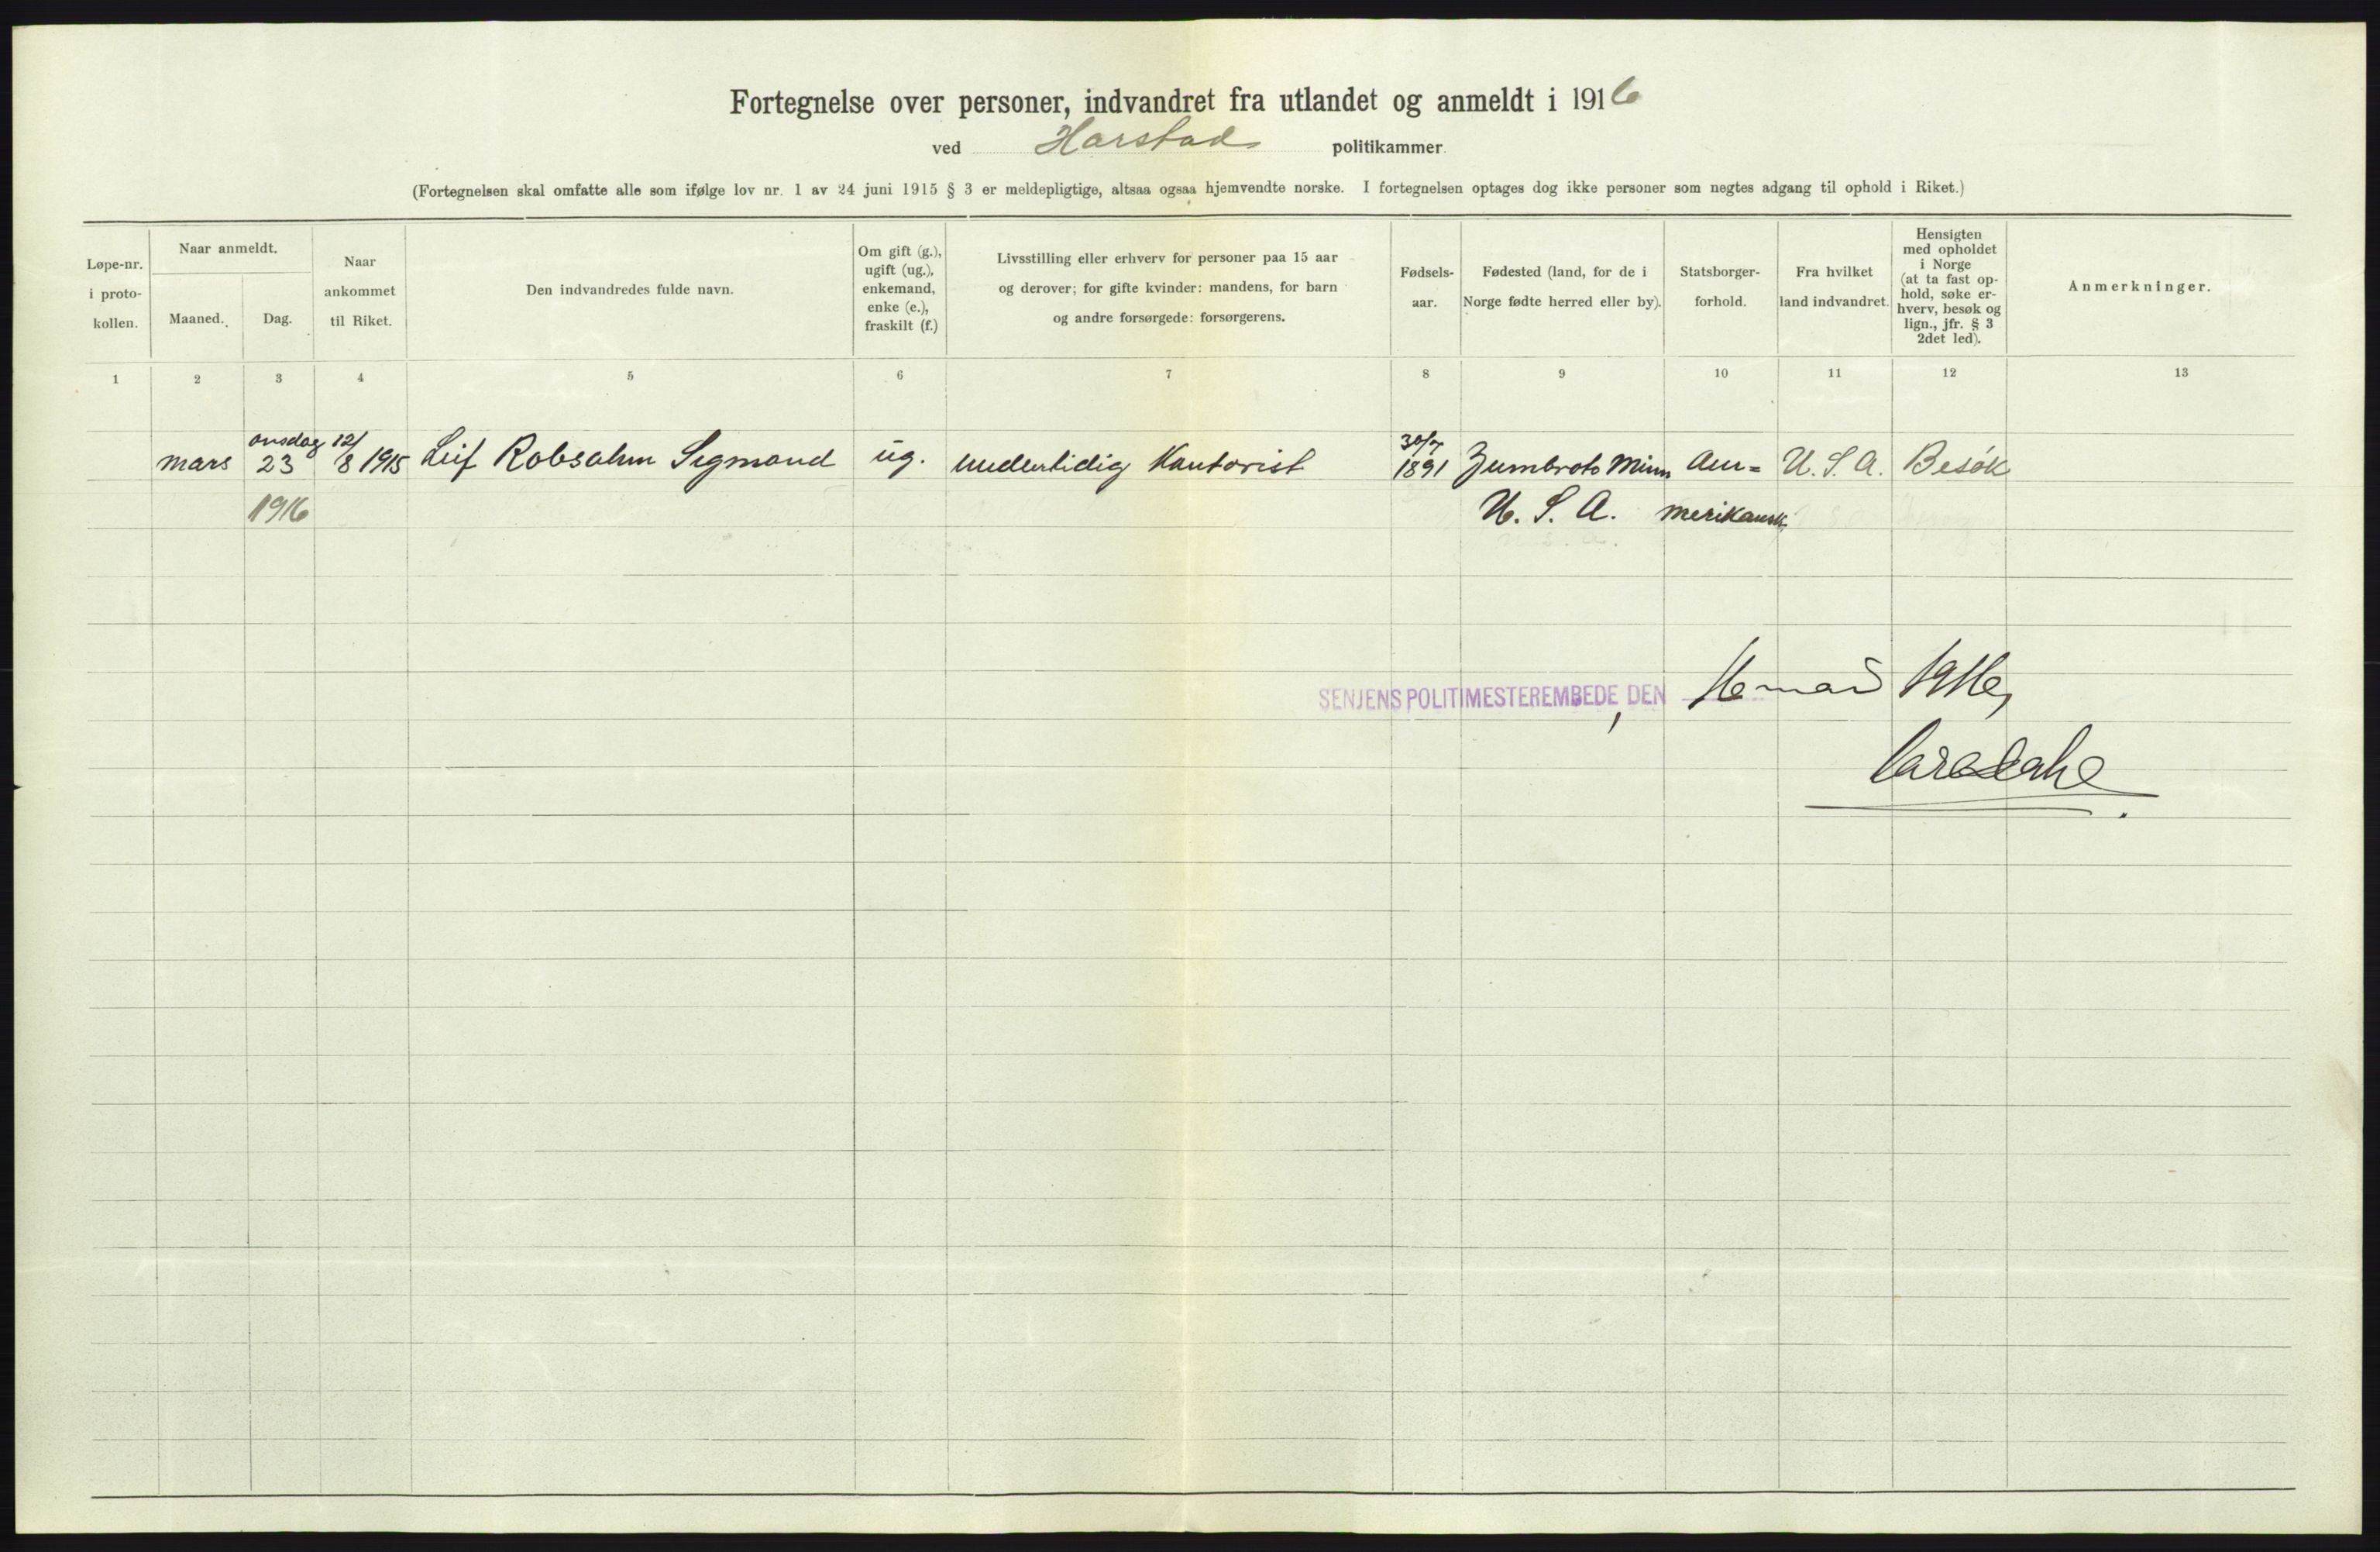 Fortegnelse over personer, indvandret fra utlandet og anmeldt i 1916
ved Harstad politikammer
(Fortegnelsen skal omfatte alle som ifølge lov nr. 1 av 24 juni 1915 § 3 er meldepligtige, altsaa ogsaa hjemvendte norske. I fortegnelsen optages dog ikke personer som negtes adgang til ophold i Riket.)
Løpe-nr.
i proto-
kollen.
Naar anmeldt.
Maaned.
Dag.
Naar
ankommet
til Riket.
Den indvandredes fulde navn.
Om gift (g.),
ugift (ug.),
enkemand,
enke (e.),
fraskilt (f.)
Livsstilling eller erhverv for personer paa 15 aar
og derover; for gifte kvinder: mandens, for barn
og andre forsørgede: forsørgerens.
Fødsels-
aar.
Fødested (land, for de i
Norge fødte herred eller by).
Statsborger-
forhold.
Fra hvilket
land indvandret.
Hensigten
med opholdet
i Norge
(at ta fast op-
hold, søke er-
hverv, besøk og
lign., jfr. § 3
2det led).
Anmerkninger.
1 2 3 4 5 6 7 8 9 10 11 12 13
onsdag 12/ 30/7
mars 23 8 1915 Leif Robsahm Sigmond ug. midlertidig Kontorist 1891 Zumbroto Minn Am= U. S. A. Besøk
1916 U. S. A. merikansk
SENJENS POLITIMESTEREMBEDE, DEN